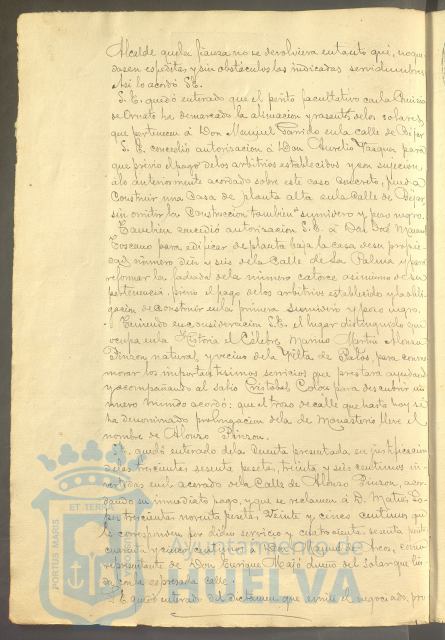 Alcalde que la fianza no se devolviera en tanto que, no que
dasen espeditas y sin obstáculos las indicadas servidumbres
Así lo acordó S.E.
S. E. quedó enterado que el perito facultativo con la Comisión
de Ornato ha demarcado la alineación y rasantes de los solares
que pertenecen á Don Manuel Garrido en la calle de Béjar
S. E. concedió autorización á Don Aurelio Vazquez para
que previo el pago de los arbitrios establecidos y con sujeción
á lo anteriormente acordado sobre este caso concreto, pueda
Construir una Casa de planta alta en la Calle de Béjar
sin omitir la Construcción tambien sumidero y pozo negro.
Tambien concedió autorización S. E. á Don José Manuel
Toscano para edificar de planta baja la casa de su propie
dad número diez y seis de la Calle de La Palma y para
reformar la fachada de la número catorce asimismo de su
pertenencia, previo el pago de los arbitrios establecido y la obli
gación de construir en la primera sumidero y pozo negro.
Teniendo en consideración S. E. el lugar distinguido que
ocupa en la Historia el Célebre Marino Martin Alonso
Pinzon natural, y vecino de la Villa de Palos, para conme
morar los importantisimos servicios que prestara ayudando
y acompañando al sabio Cristobal Colón para descubrir un
nuevo mundo acordó: que el trozo de calle que hasta hoy se
ha denominado prolongacion de la de Monasterio lleve el
nombre de Alonso Pinzon.
S. E. quedó enterado de la Cuenta presentada en justificación
de las trescientas sesenta pesetas, treinta y seis centimos in
vertidas en el acerado de la Calle de Alonso Pinzon, acor
dando su inmediato pago, y que se reclamen á D. Matias Lo
pez trescientas noventa pesetas veinte y cinco centimos que
le corresponden por dicho servicio y cuatrocientas sesenta pesetas
cuarenta y cinco centimos á Don Manuel de Arcos, como
representante de Don Enrique Majó dueño del solar que lin
da, con la espresada calle.
S. E. quedó enterado del dictamen que emite el negociado, pro
PORTUS MARIS
ET TERRÆ
Ayuntamiento de
HUELVA